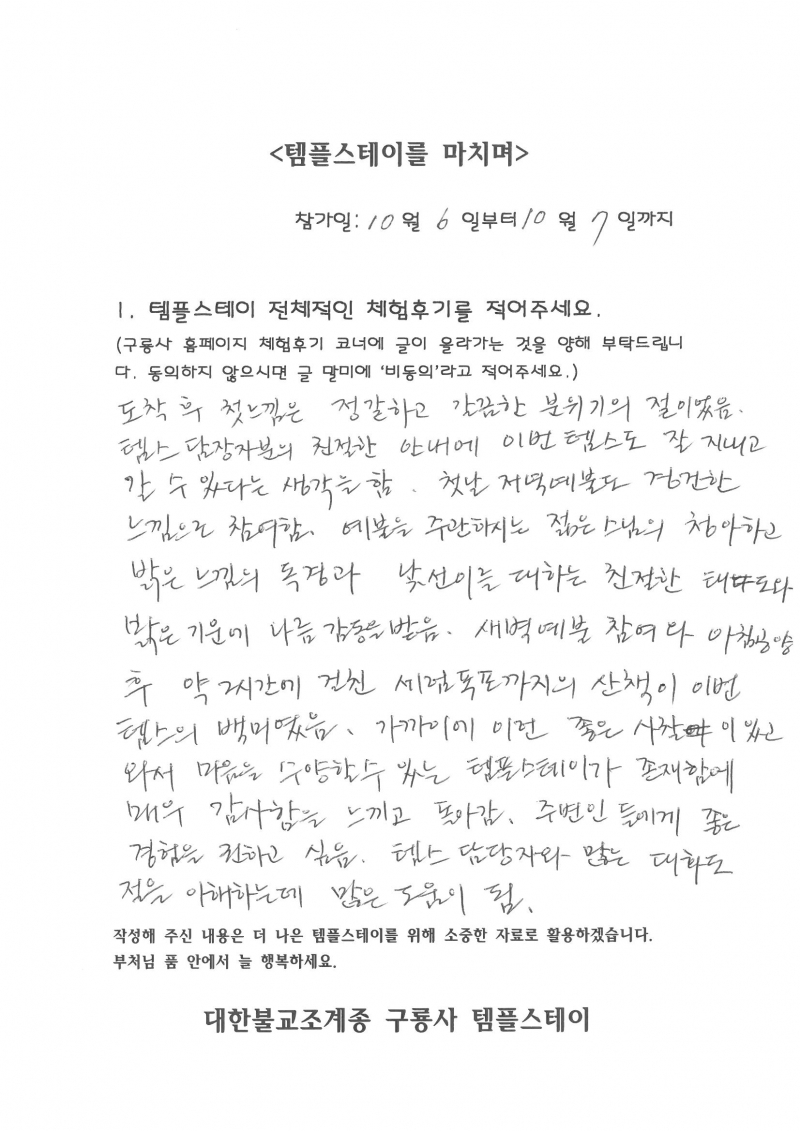 <템플스테이를 마치며>
참가일: 10 월 6 일부터 10 월 7 일까지
1. 템플스테이 전체적인 체험후기를 적어주세요.
(구룡사 홈페이지 체험후기 코너에 글이 올라가는 것을 양해 부탁드립니
다. 동의하지 않으시면 글 말미에 '비동의'라고 적어주세요.)
도착 후 첫느낌은 정갈하고 깔끔한 분위기의 절이었음.
템스 담장자분의 친절한 안내에 이번 템스도 잘 지내고
갈 수 있다는 생각을 함. 첫날 저녁예불도 경건한
느낌으로 참여함. 예불을 주관하시는 젊은 스님의 청아하고
밝은 느낌의 독경과 낯선이를 대하는 친절한 태도와
밝은 기운에 나름 감동을 받음. 새벽예불 참여와 아침공양
후 약 2시간에 걸친 세렴폭포까지의 산책이 이번
템스의 백미였음. 가까이에 이런 좋은 사찰이 있고
와서 마음을 수양할 수 있는 템플스테이가 존재함에
매우 감사함을 느끼고 돌아감. 주변인 들에게 좋은
경험을 권하고 싶음. 템스 담당자와 많은 대화도
절을 이해하는데 많은 도움이 됨.
작성해 주신 내용은 더 나은 템플스테이를 위해 소중한 자료로 활용하겠습니다.
부처님 품 안에서 늘 행복하세요.
대한불교조계종 구룡사 템플스테이